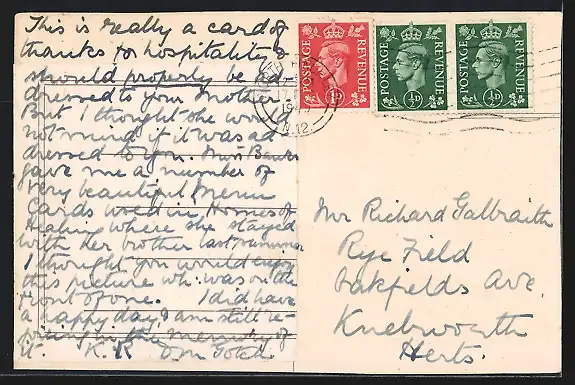 This is really a card of
thanks for hospitality &
should properly be ad-
dressed to your Mother.
But I thought she would
not mind if it was ad
dressed to you. Miss Banks
gave me a number of
very beautiful Menu
Cards used in Homes of
Healing where she stayed
with her brother last summer
I thought you would enjoy
this picture wh: was on the
front of one. I did have
a happy day, I am still re-
joicing in the memory of
it. K. R D.M Gotch.
POSTAGE REVENUE
1D
POSTAGE REVENUE
½D
POSTAGE REVENUE
½D
194
N.12
Mr Richard Galbraith
Rye Field
Oakfields Ave.
Knebworth
Herts.